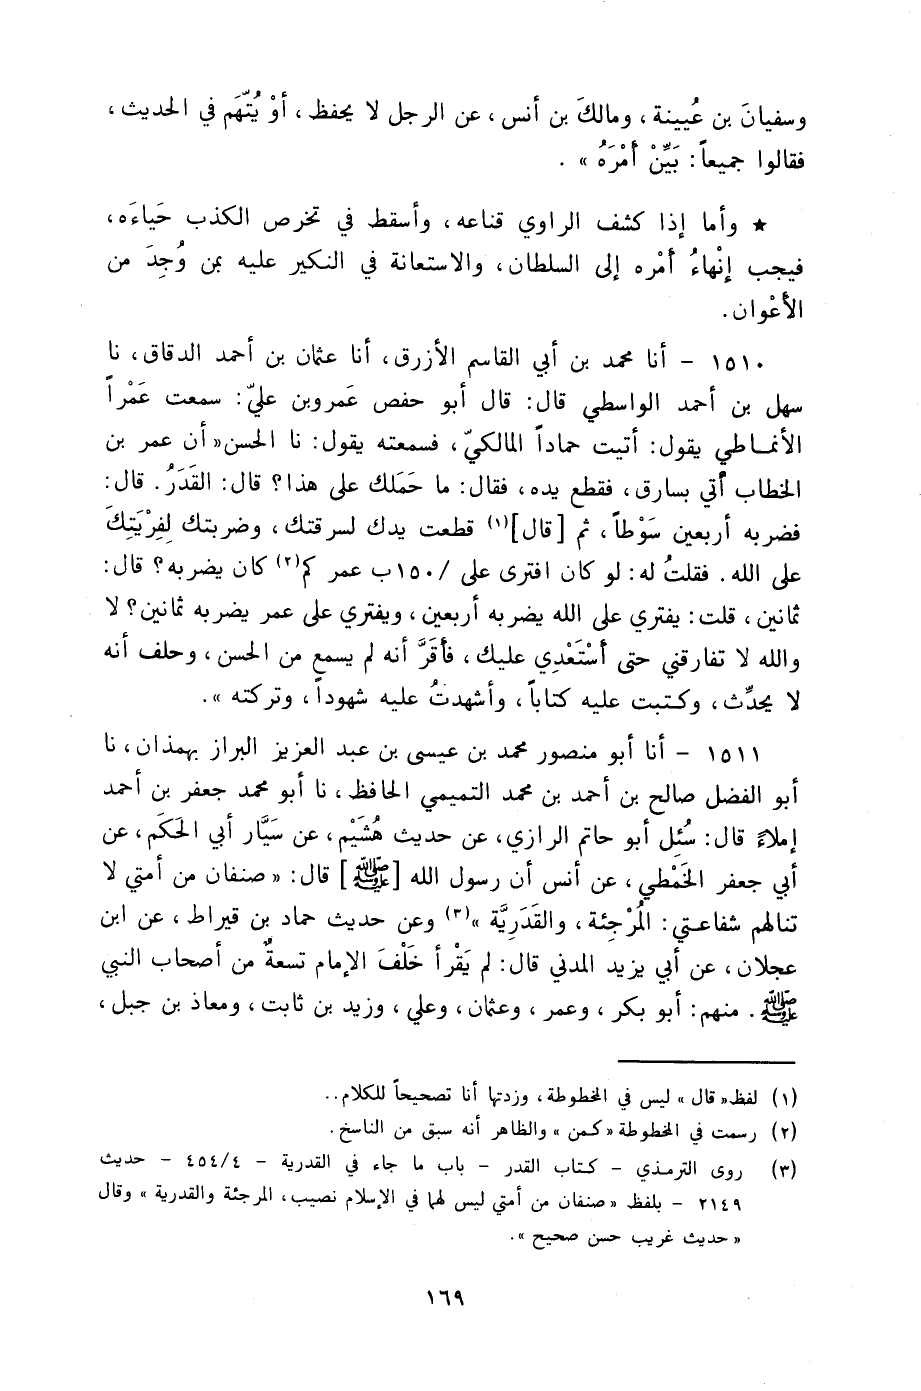 وسفيانَ بن عُيينة ، ومالكَ بن أنس ، عن الرجل لا يحفظ ، أوْ يُتّهَم في الحديث ،
فقالوا جميعاً : بَيِّنْ أَمْرَهُ » .
★ وأما إذا كشف الراوي قناعه ، وأسقط في تخرص الكذب حَياءَه ،
فيجب إنْهاءُ أمْره إلى السلطان ، والاستعانة في النكير عليه بمن وُجِدَ من
الأعْوان .
١٥١٠ – أنا محمد بن أبي القاسم الأزرق ، أنا عثمان بن أحمد الدقاق ، نا
سهل بن أحمد الواسطي قال : قال أبو حفص عَمروبن عليّ : سمعت عَمْراً
الأنمـاطي يقول : أتيت حماداً المالكيّ ، فسمعته يقول : نا الحسن « أن عمر بن
الخطاب أُتي بسارق ، فقطع يده ، فقال : ما حَمَلك على هذا ؟ قال : القَدَرُ . قال :
فضربه أربعين سَوْطاً ، ثم [ قال ](١) قطعت يدك لسرقتك ، وضربتك لِفِرْيَتِكَ
على الله . فقلتُ له : لو كان افترى على / ١٥٠ب عمر كم(٢) كان يضربه ؟ قال :
ثمانين ، قلت : يفتري على الله يضربه أربعين ، ويفتري على عمر يضربه ثمانين ؟ لا
والله لا تفارقني حتى أسْتَعْدِي عليك ، فأقَرَّ أنه لم يسمع من الحسن ، وحلف أنه
لا يحدِّث ، وكـتبت عليه كتاباً ، وأشهدتُ عليه شهوداً ، وتركته » .
١٥١١ – أنا أبو منصور محمد بن عيسى بن عبد العزيز البراز بهمذان ، نا
أبو الفضل صالح بن أحمد بن محمد التميمي الحافظ ، نا أبو محمد جعفر بن أحمد
إملاءً قال : سُئِل أبو حاتم الرازي ، عن حديث هُشَيْم ، عن سَيَّار أبي الحَكَم ، عن
أبي جعفر الخَمْطي ، عن أنس أن رسول الله [ ﷺ ] قال : « صنفان من أمتي لا
تنالهم شفاعتي : المُرْجِئة ، والقَدَرِيَّة »(٣) وعن حديث حماد بن قيراط ، عن ابن
عجلان ، عن أبي يزيد المدني قال : لم يَقْرأ خَلْفَ الإمام تسعةٌ من أصحاب النبي
ﷺ . منهم : أبو بكر ، وعمر ، وعثمان ، وعلي ، وزيد بن ثابت ، ومعاذ بن جبل ،
(١) لفظ « قال » ليس في المخطوطة ، وزدتها أنا تصحيحاً للكلام ..
(٢) رسمت في المخطوطة « كـمن » والظاهر أنه سبق من الناسخ .
(٣) روى الترمذي – كتاب القدر – باب ما جاء في القدرية – ٤ / ٤٥٤ – حديث
٢١٤٩ – بلفظ « صنفان من أمتي ليس لهما في الإسلام نصيب ، المرجئة والقدرية » وقال
« حديث غريب حسن صحيح » .
١٦٩